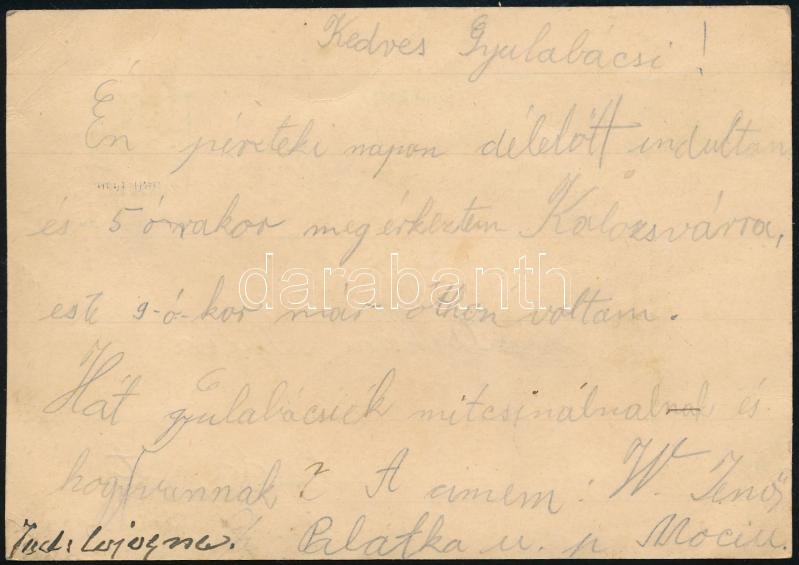 Kedves Gyulabácsi!
Én pénteki napon délelőtt indultam
és 5 órrakor megérkeztem Kolozsvárra,
este 9-ó-kor már othon voltam.
Hát gyulabácsiék mitcsinálnak és
hogyvannak? A cimem: W. Jenő
Palatka u. p Mociu.
Jud. Cojocna.
darabanth